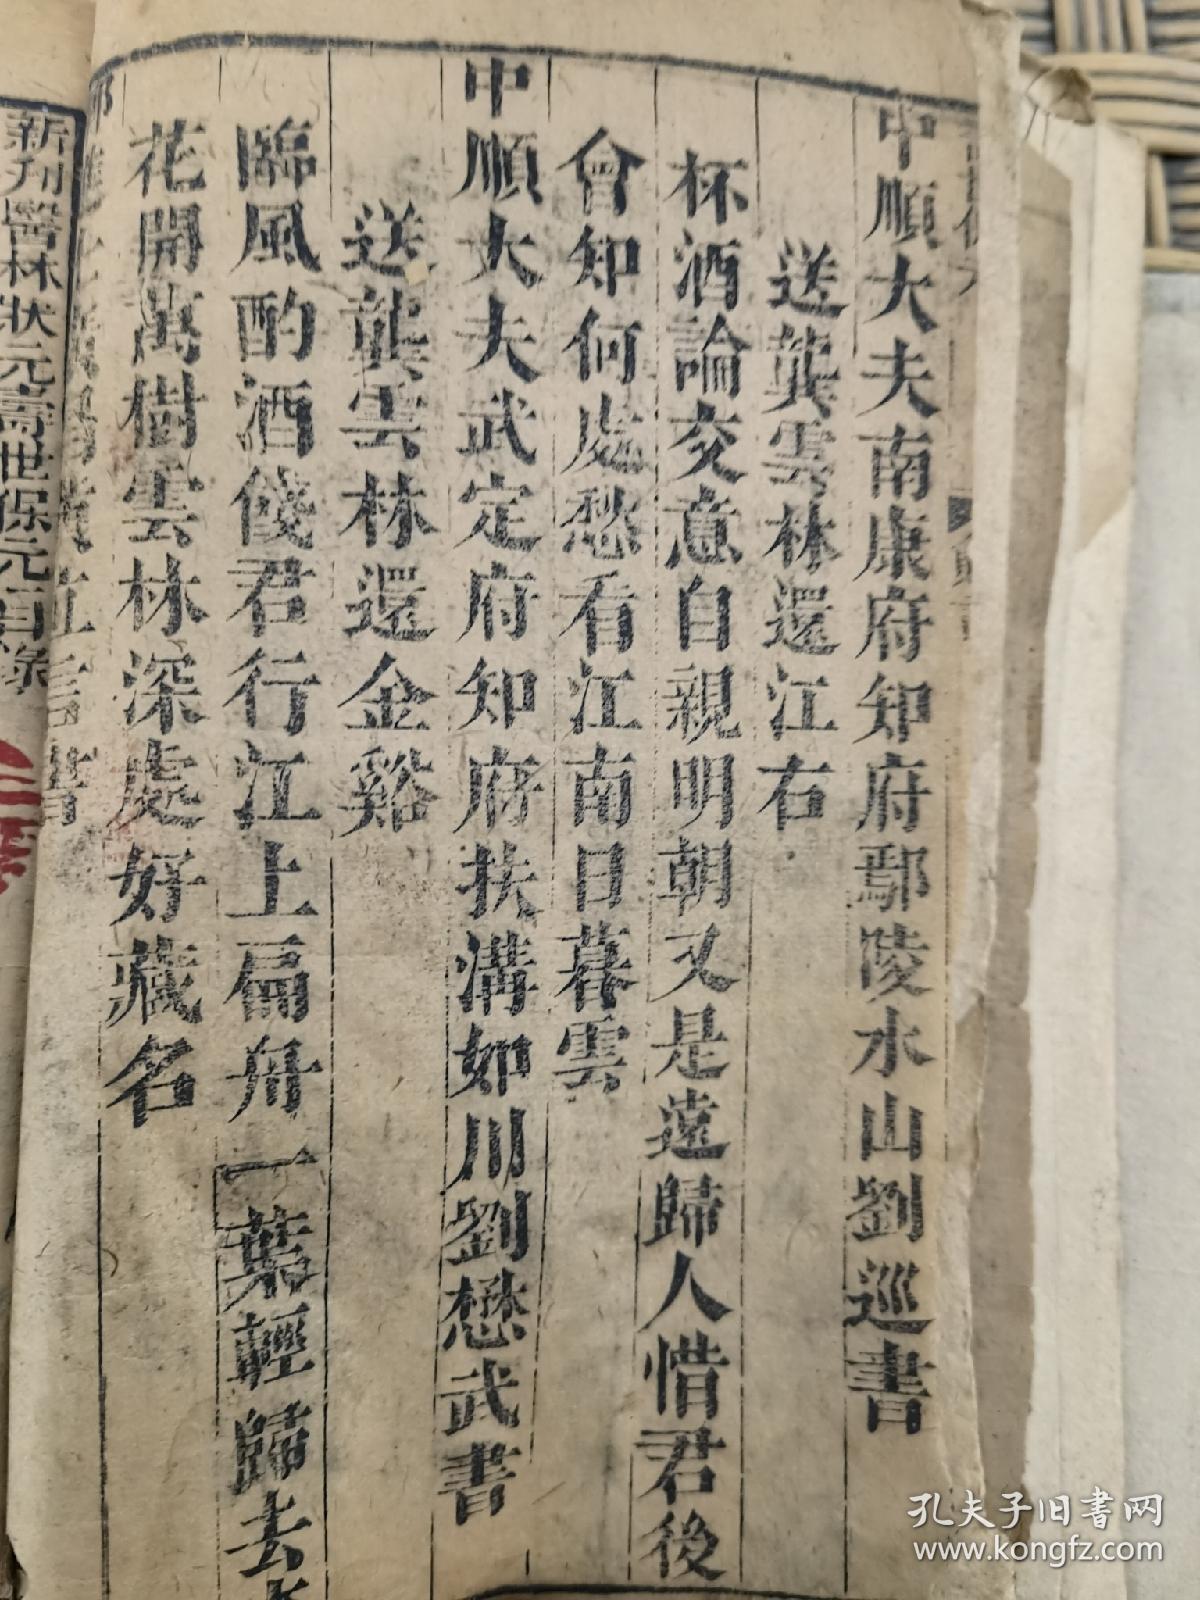 中順大夫南康府知府鄢陵水山劉巡書
送龔雲林還江右
杯酒論交意自親明朝又是遠歸人惜君後
會知何處愁看江南日暮雲
中順大夫武定府知府扶溝如川劉懋武書
送龔雲林還金谿
臨風酌酒餞君行江上扁舟一葉輕歸去
花開萬樹雲林深處好藏名
新刊醫林狀元壽世保元目錄
孔夫子旧书网
www.kongfz.com